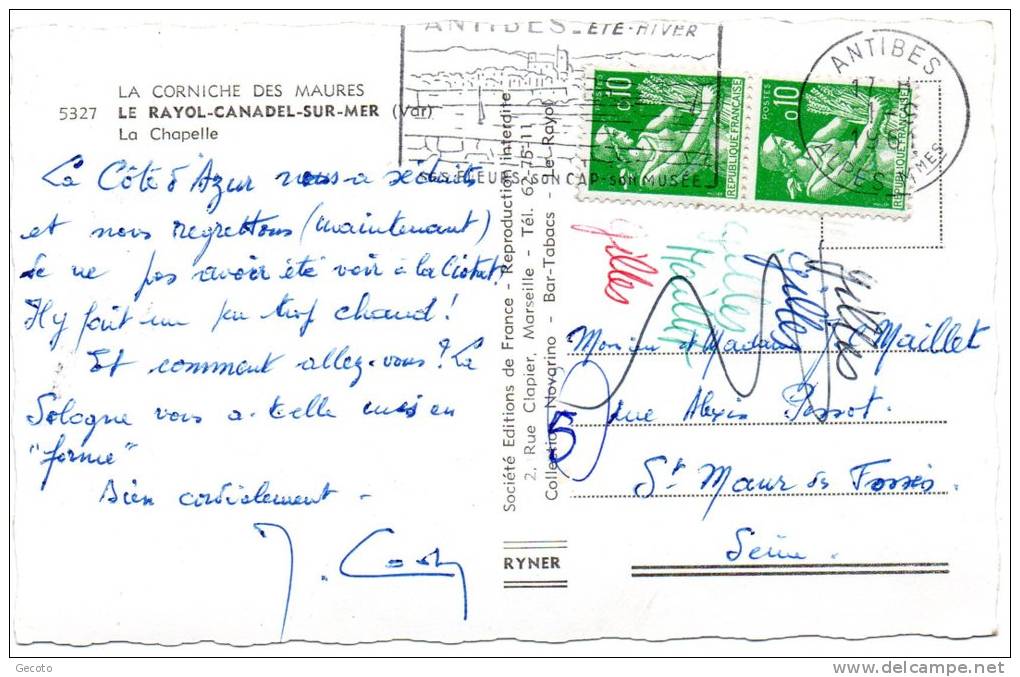 LA CORNICHE DES MAURES
5327 LE RAYOL-CANADEL-SUR-MER (Var)
La Chapelle
La Côte d'Azur nous a séduits
et nous regrettons (maintenant)
de ne pas avoir été voir à la Ciotat!
Il y fait un peu trop chaud!
Et comment allez-vous? La
Sologne vous a-t-elle mis en
"forme"
Bien cordialement -
ANTIBES_ETE-HIVER
SES FLEURS-SON CAP-SON MUSÉE
ANTIBES
17
ALPES MMES
POSTES
0,10
REPUBLIQUE FRANÇAISE
POSTES
0,10
REPUBLIQUE FRANÇAISE
Société Editions de France - Reproduction interdite
2, Rue Clapier, Marseille - Tél. 62-75-11
Collection Novarino - Bar-Tabacs - Le Rayol
RYNER
Gilles
Maillet
Gilles
Gilles
Gilles
Monsieur et Madame Maillet
5 rue Alexis Pessot.
St Maur des Fossés.
Seine.
Gecoto
www.delcampe.net